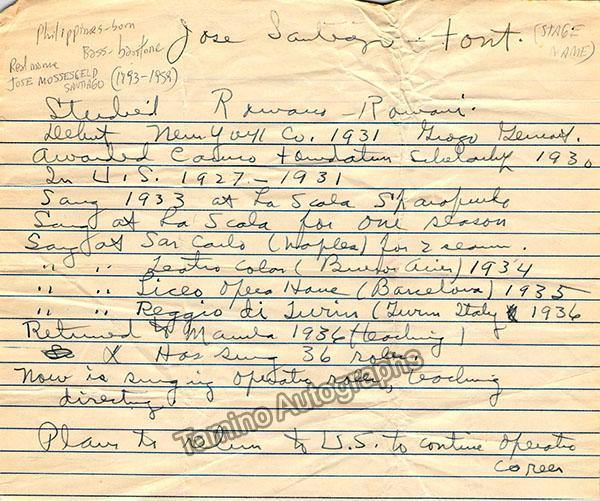 Philippines-born
Bass-baritone
Real name
JOSE MOSSESGELD
SANTIAGO (1893-1959)
Jose Santiago - Font. (STAGE NAME)
Studied Romano - Romani.
Debut New York Co. 1931
Awarded Caruso Foundation Scholarship 1930
In U.S. 1927 - 1931
Sang 1933 at La Scala
Sang at La Scala for one season
Sang at San Carlo (Naples) for 2 season.
" " Teatro Colon (Buenos Aires) 1934
" " Liceo Opera House (Barcelona) 1935
" " Reggio di Turin (Turin Italy 1936
Returned to Manila 1936 (teaching)
X Has sung 36 roles
Now is singing operatic roles, teaching
directing
Plans to return to U.S. to continue operatic
career
Tamino Autographs